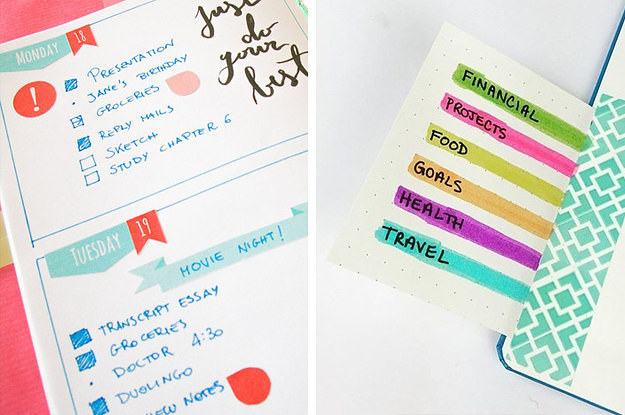 MONDAY 18
just
do
your
best
!
PRESENTATION
JANE'S BIRTHDAY
GROCERIES
REPLY MAILS
SKETCH
STUDY CHAPTER 6
TUESDAY 19
MOVIE NIGHT!
TRANSCRIPT ESSAY
GROCERIES
DOCTOR 4:30
DUOLINGO
NOTES
FINANCIAL
PROJECTS
FOOD
GOALS
HEALTH
TRAVEL